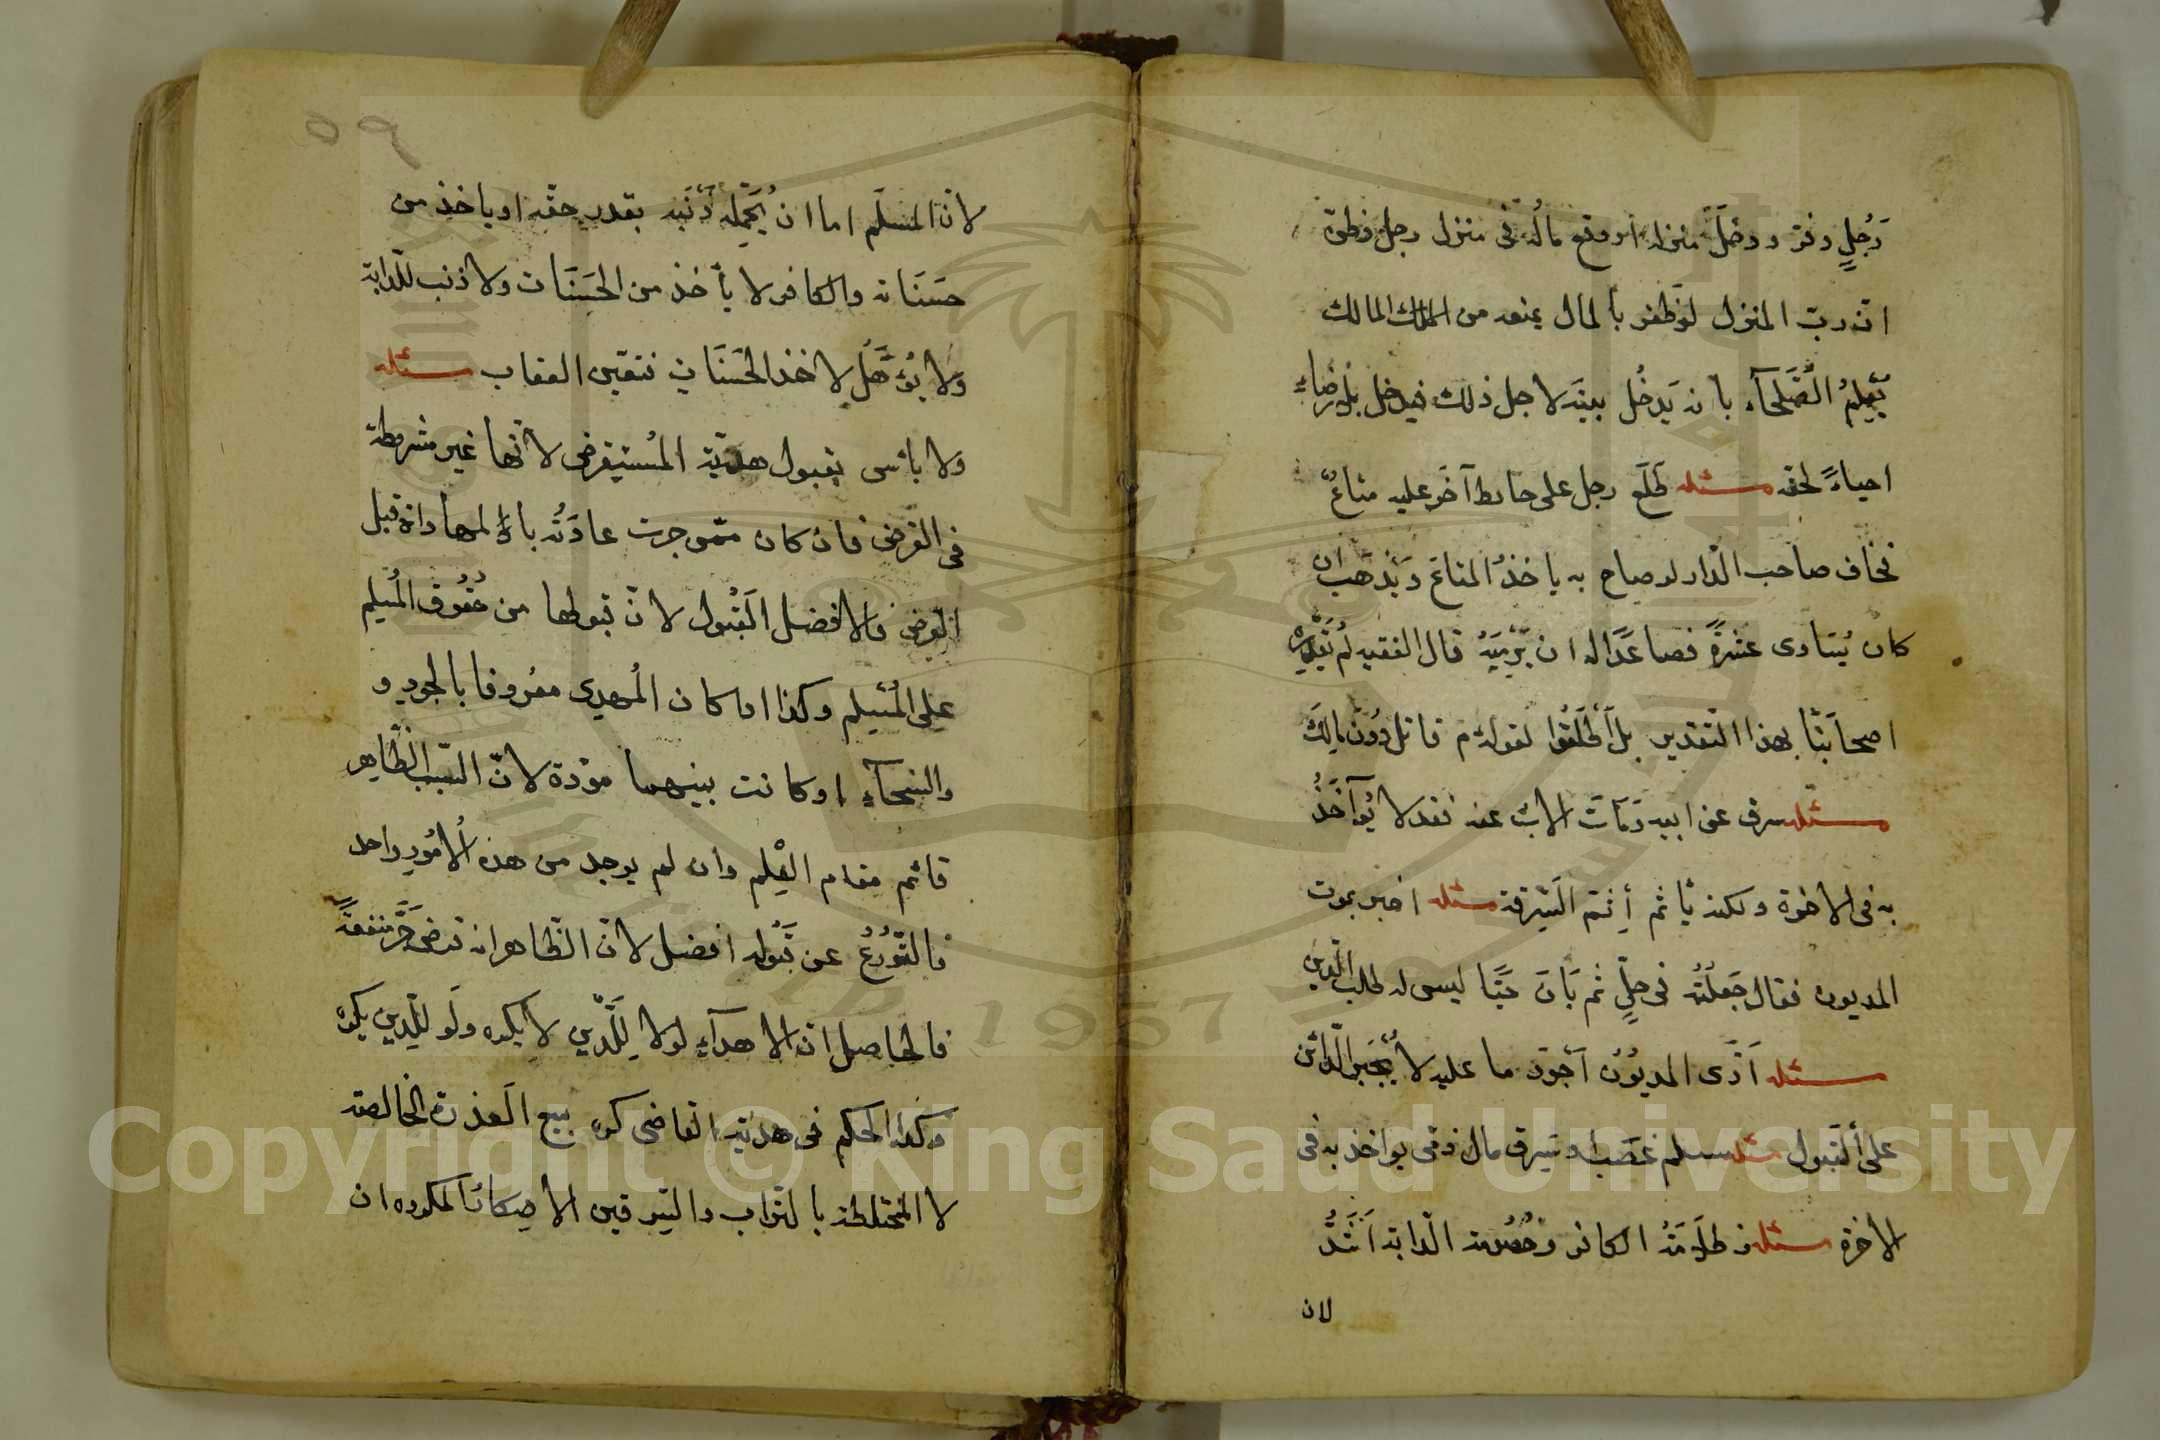 رَجُلٍ وفرّ ودخل منزله أو وقع مالُه في منزل رجل وظنّ
انه ربّ المنزل لو ظفر بالمال يمنعه من المالك
يُعلِمُ الصُّلَحَآء بانه يَدخُل بيتَه لاجل ذلك فيدخل بلا رضاءٍ
احياءً لحقه مسئله طَلَع رجل على حائط آخَر عليه متاعٌ
فخاف صاحب الدار لو صاح به ياخذُ المتاعَ ويَذهب ان
كان يُسَاوى عشرةً فصاعدًا له ان يَرْمِيَهُ قال الفقيه لم يُقدِّره
اصحابُنَا بهذا التقدير بل أطلَقُوا لقوله م قاتل دُونَ مالِكَ
مسئله سرق عن ابيه ومَاتَ الابُ عنه فقد لا يُؤآخَذُ
به في الاخرة ولكنه يأثم إثم السَّرقة مسئله اخبر بموت
المديون فقال جَعلتُه في حِلٍّ ثم بَانَ حيًّا ليس له طلب الدين
مسئله اَدَّى المديوُنُ اَجْوَدَ ما عليه لا يُجْبَر الدّائن
على القَبول مسئله مسلم غصَبَ او سَرق مال ذمّى يواخذ به في
الاخرة مسئله وظلامَةُ الكافر وخصُومة الدابة اَشَدُّ
لان
٥٩
لانّ المسلم اما ان يُحمِّله ذَنْبه بقدر حقّه او ياخذ من
حسَنَاته والكافر لا يأخذ من الحَسَنَات ولا ذنب للدابة
ولا يُؤهَّل لاخذ الحَسَنَات فتعيّن العقاب مسئله
ولا باسَ بقبول هديّة المُستقرض لانّها غير مشروطة
في القرض فان كان ممّن جرت عادَتُه بالمهاداة قبل
القرض فالافضل القَبُول لانّ قبولها من حُقُوق المُسلم
على المُسْلم وكذا اذا كان المُهدِى معرُوفا بالجود و
والسخآءِ او كانت بينهما مودّة لانّ السّبب الظّاهر
قائم مقام العِلم وان لم يوجد من هذه الاُمُور واحد
فالتَّوَرُّعُ عن قَبُوله افضل لانّ الظّاهر انه قرض جَرَّ منفعةً
فالحاصل ان الاهدآءِ لو لا للدَّينِ لا يكره ولَو للِدَّينِ يكره
وكذا الحكم في هديّة القاضى كره بيع العَذرة الخالصة
لا المختلطة بالتراب والسرقين الا صِكاكا لمكروه ان